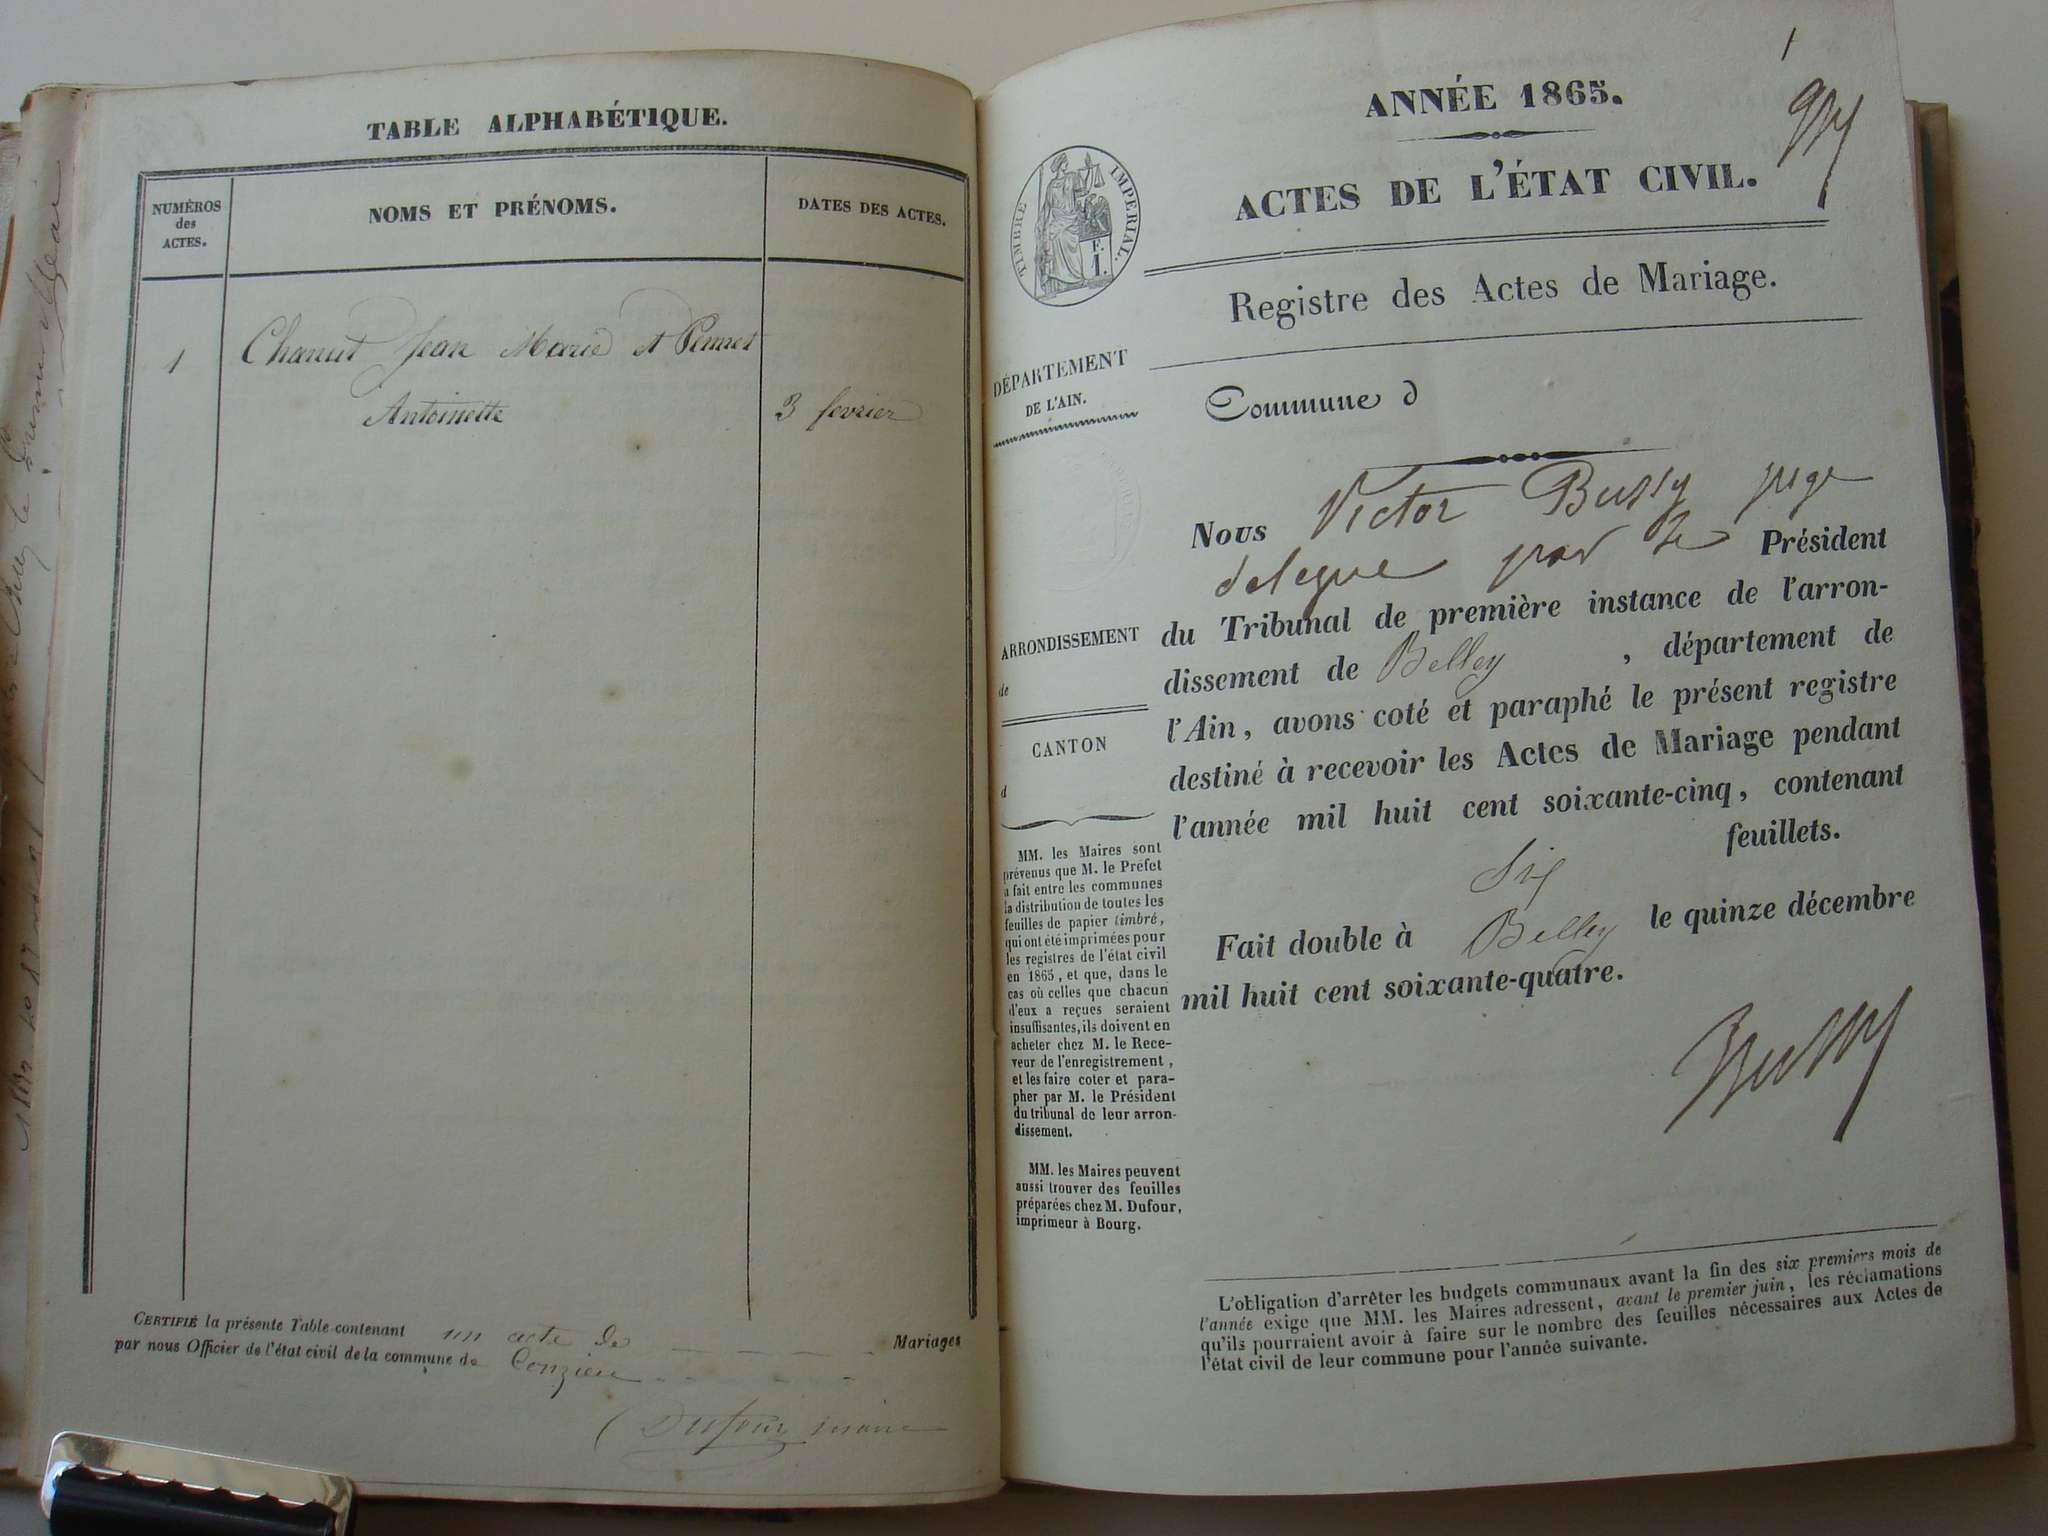 TABLE ALPHABÉTIQUE.
NUMÉROS
des
ACTES.
NOMS ET PRÉNOMS.
DATES DES ACTES.
1
Chanut Jean Marie et Pennet
Antoinette
3 fevrier
CERTIFIÉ la présente Table contenant un acte de Mariages
par nous Officier de l'état civil de la commune de Conzieu
Dufour maire
1
ANNÉE 1865.
ACTES DE L'ÉTAT CIVIL.
TIMBRE IMPERIAL.
F.
1.
Registre des Actes de Mariage.
DÉPARTEMENT
DE L'AIN.
Commune d
ARRONDISSEMENT
de
CANTON
d
MM. les Maires sont
prévenus que M. le Préfet
a fait entre les communes
la distribution de toutes les
feuilles de papier timbré,
qui ont été imprimées pour
les registres de l'état civil
en 1865, et que, dans le
cas où celles que chacun
d'eux a reçues seraient
insuffisantes, ils doivent en
acheter chez M. le Rece-
veur de l'enregistrement,
et les faire coter et para-
pher par M. le Président
du tribunal de leur arron-
dissement.
MM. les Maires peuvent
aussi trouver des feuilles
préparées chez M. Dufour,
imprimeur à Bourg.
Nous Victor Bussy juge
delegue par le Président
du Tribunal de première instance de l'arron-
dissement de Belley, département de
l'Ain, avons coté et paraphé le présent registre
destiné à recevoir les Actes de Mariage pendant
l'année mil huit cent soixante-cinq, contenant
Six feuillets.
Fait double à Belley le quinze décembre
mil huit cent soixante-quatre.
Bussy
L'obligation d'arrêter les budgets communaux avant la fin des six premiers mois de
l'année exige que MM. les Maires adressent, avant le premier juin, les réclamations
qu'ils pourraient avoir à faire sur le nombre des feuilles nécessaires aux Actes de
l'état civil de leur commune pour l'année suivante.